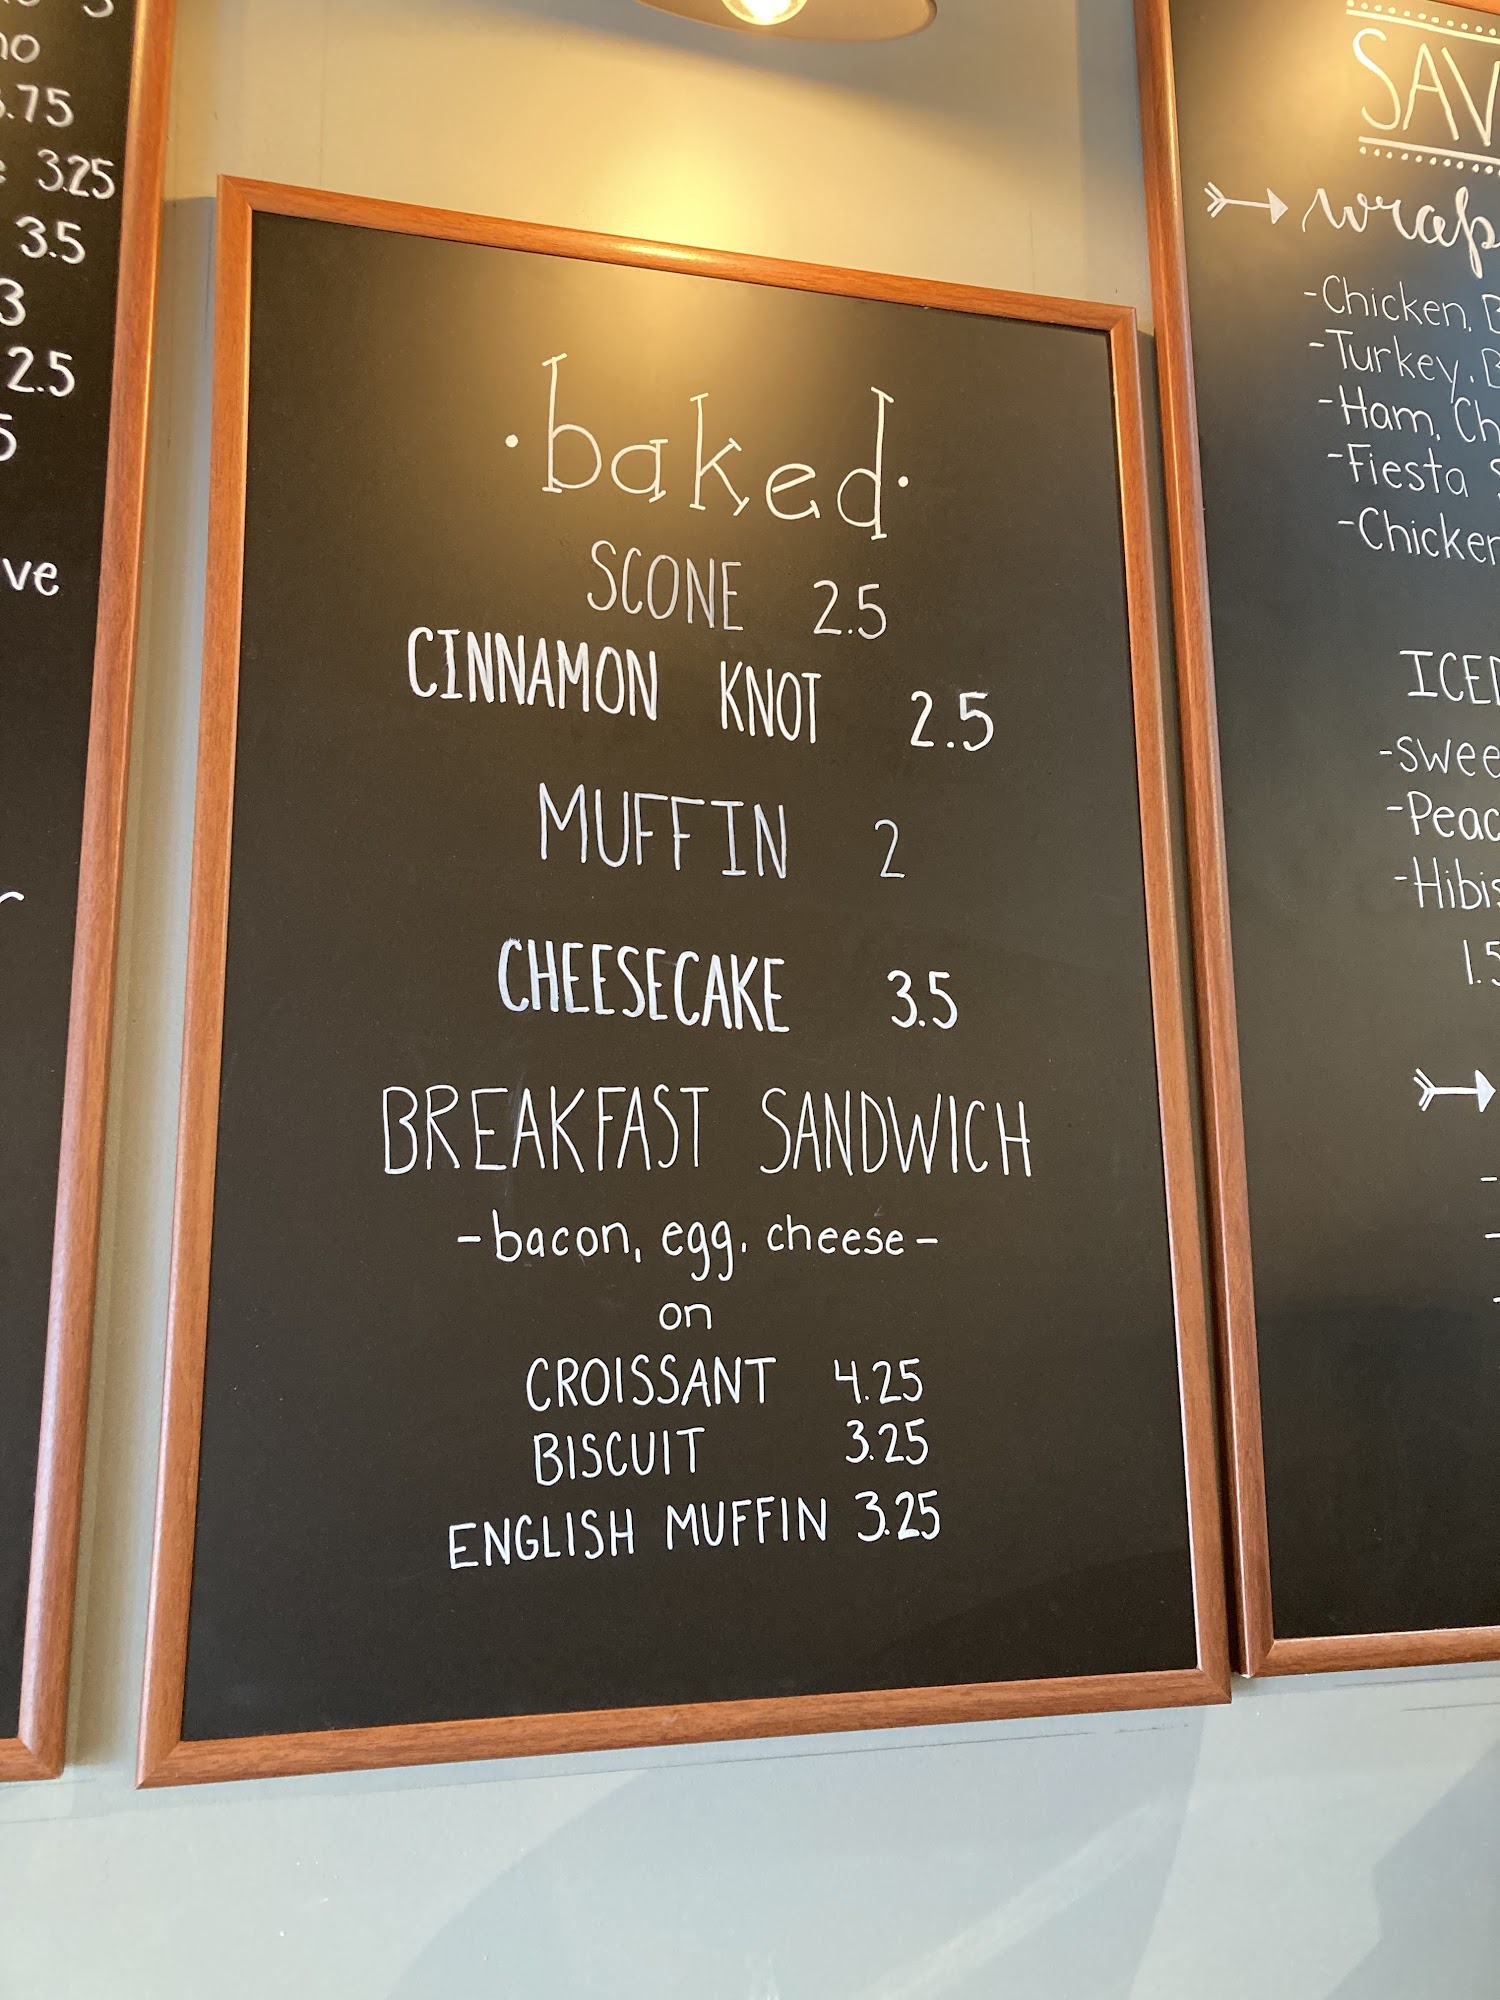 3
no
3.75
3.25
3.5
3
2.5
5
ve
·baked·
SCONE 2.5
CINNAMON KNOT 2.5
MUFFIN 2
CHEESECAKE 3.5
BREAKFAST SANDWICH
-bacon, egg, cheese-
on
CROISSANT 4.25
BISCUIT 3.25
ENGLISH MUFFIN 3.25
SAV
wrap
-Chicken, B
-Turkey, B
-Ham, Ch
-Fiesta S
-Chicken
ICED
-swee
-Peac
-Hibis
1.5